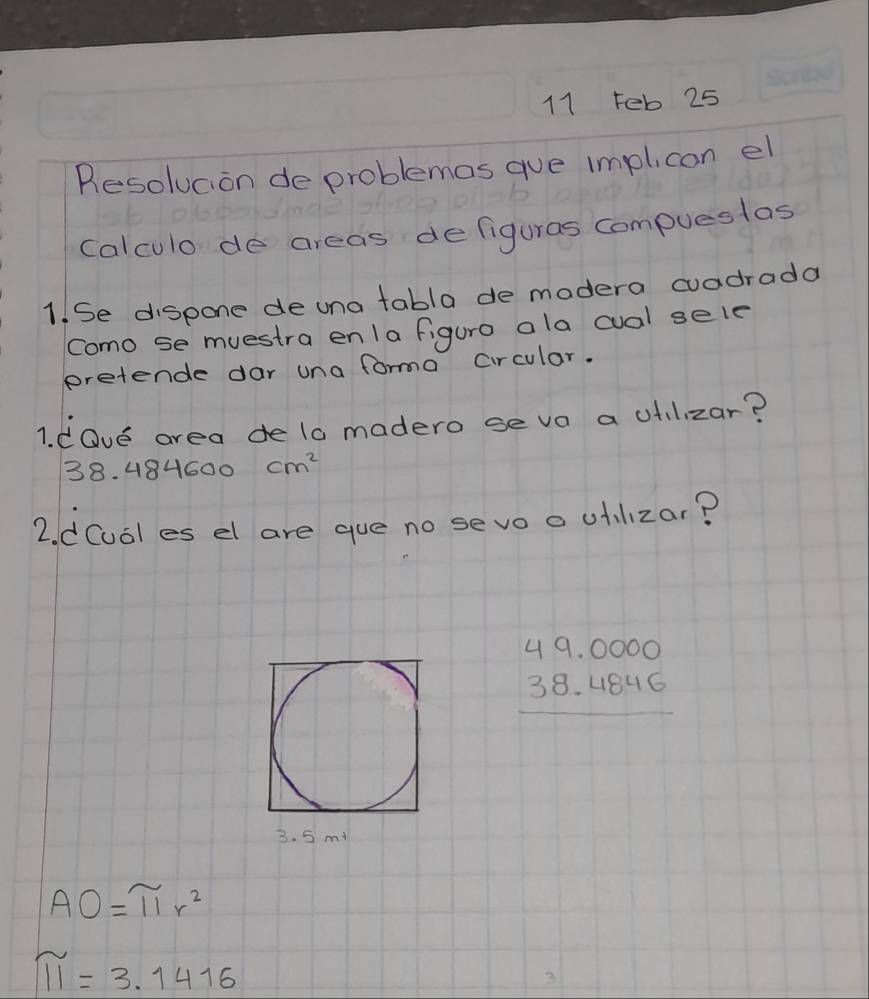 11 Feb 25
Resolución de problemas que implican el
calculo de areas de figuras compuestas
1. Se dispone de una tabla de madera cuadrada
como se muestra en la figura a la cual se le
pretende dar una forma circular.
1. ¿Qué area de la madera se va a utilizar?
38.484600 cm²
2. ¿Cuál es el are que no se va a utilizar?
49.0000
38.4846
3.5 mt
AO = π r²
π = 3.1416
3